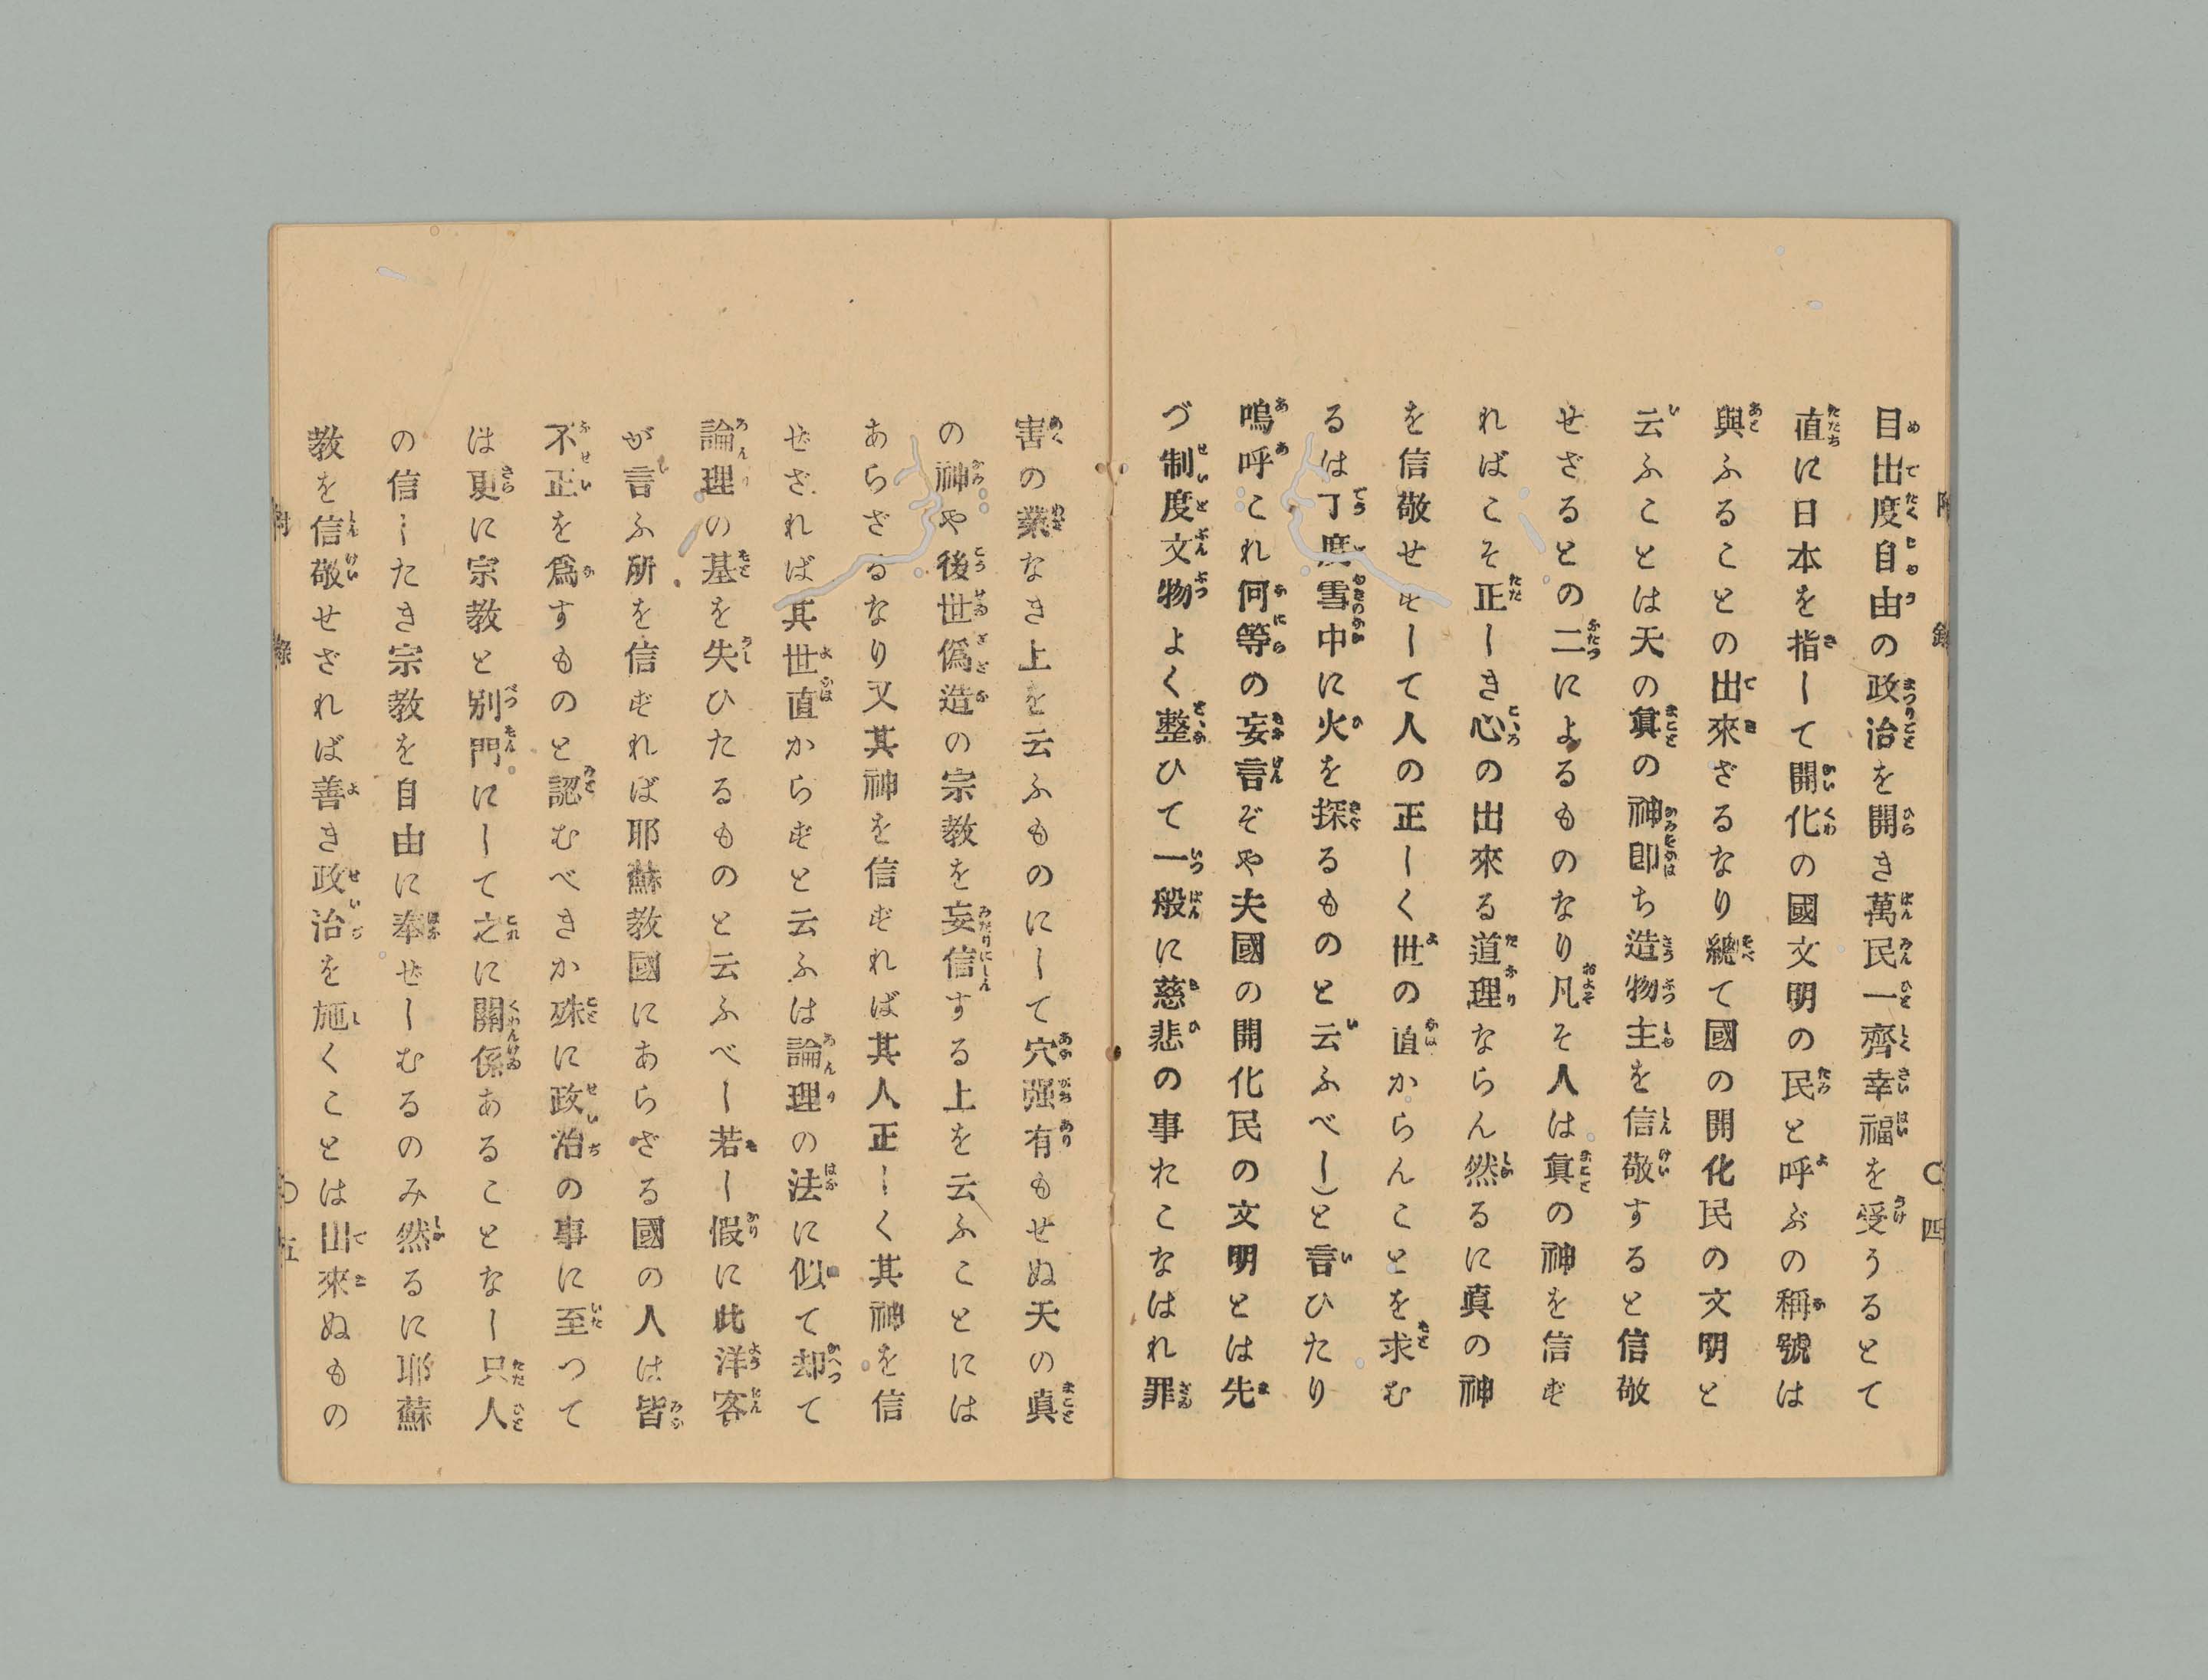 附錄 〇四
目出度自由の政治を開き萬民一齊幸福を受うるとて
直に日本を指して開化の國文明の民と呼ぶの稱號は
與ふることの出來ざるなり總て國の開化民の文明と
云ふことは天の眞の神即ち造物主を信敬すると信敬
せざるとの二によるものなり凡そ人は眞の神を信ぜ
ればこそ正しき心の出來る道理ならん然るに眞の神
を信敬せずして人の正しく世の直からんことを求む
るは丁度雪中に火を探るものと云ふべし)と言ひたり
嗚呼これ何等の妄言ぞや夫國の開化民の文明とは先
づ制度文物よく整ひて一般に慈悲の事れこなはれ罪
害の業なき上を云ふものにして穴强有もせぬ天の眞
の神や後世僞造の宗教を妄信する上を云ふことには
あらざるなり又其神を信ずれば其人正しく其神を信
ぜざれば其世直からずと云ふは論理の法に似て却て
論理の基を失ひたるものと云ふべし若し假に此洋客
が言ふ所を信ずれば耶蘇教國にあらざる國の人は皆
不正を爲すものと認むべきか殊に政治の事に至つて
は更に宗教と別門にして之に關係あることなし只人
の信じたき宗教を自由に奉ぜしむるのみ然るに耶蘇
教を信敬せざれば善き政治を施くことは出來ぬもの
附錄 〇五